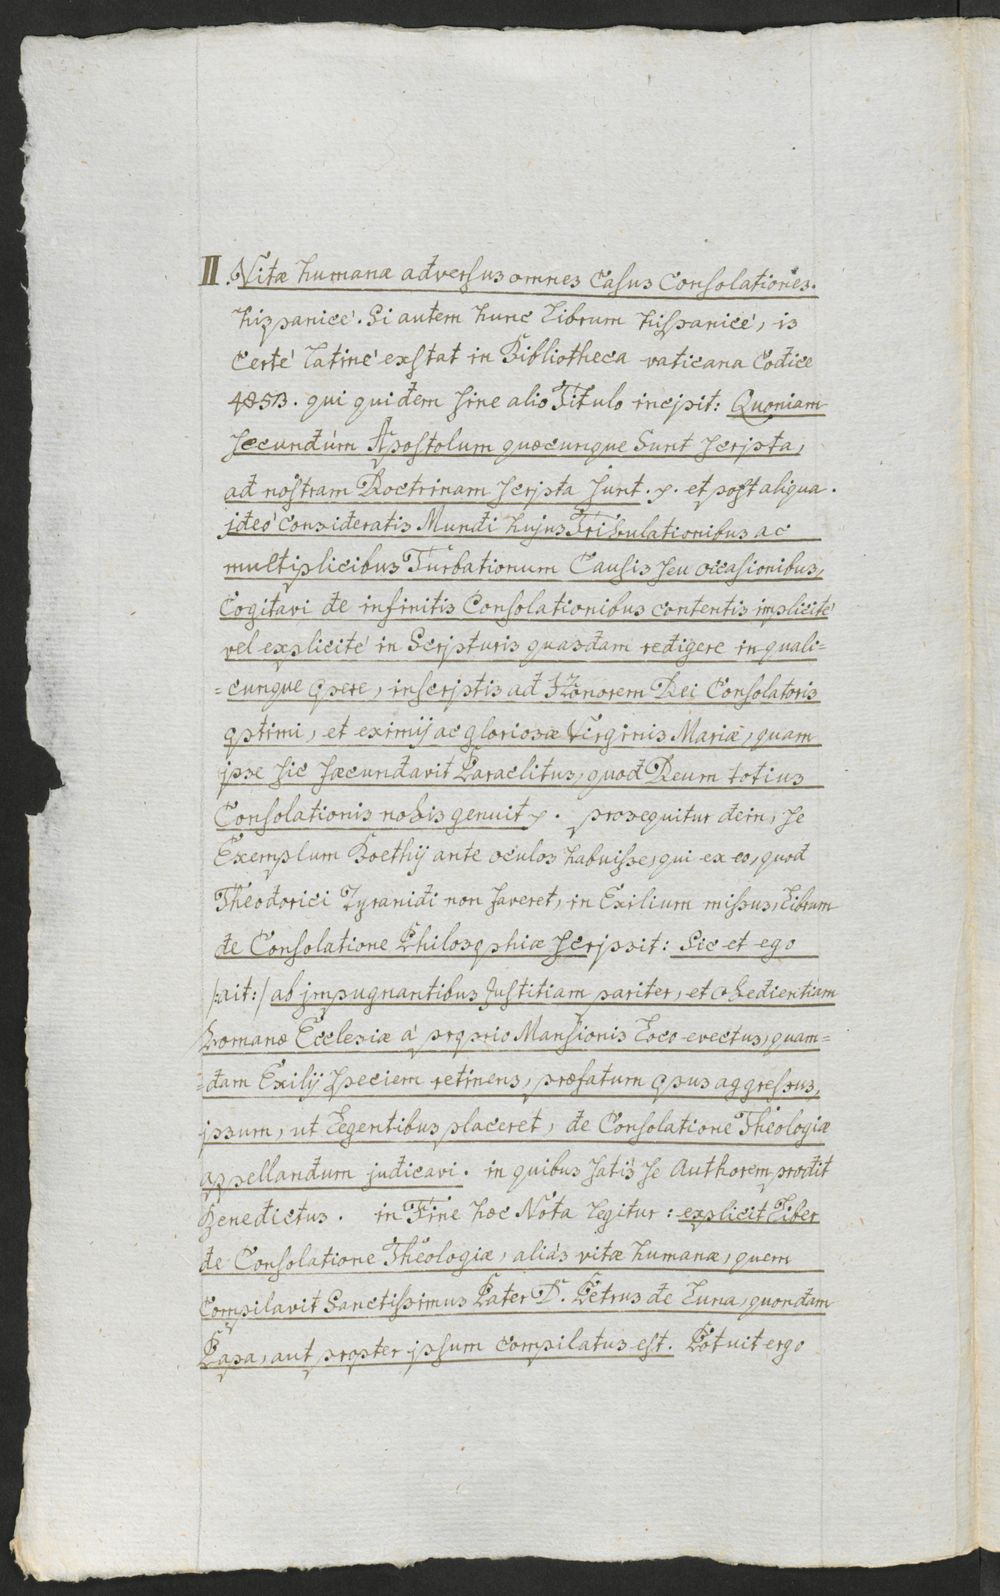 II. Vitæ humanæ adversus omnes Casus Consolationes.
hispanicè. Si autem hunc Librum hispanicè, is
Certè Latinè exstat in Bibliotheca vaticana Codice
4853. qui quidem sine alio Titulo incipit: Quoniam
secundùm Apostolum quæcunque Sunt scripta,
ad nostram Doctrinam scripta sunt. &. et post aliqua.
jdeò consideratis Mundi hujus Tribulationibus ac
multiplicibus Turbationum Causis seu occasionibus,
Cogitavi de infinitis Consolationibus contentis implicitè
vel explicitè in Scripturis quasdam redigere in quali=
=cunque opere, inscriptis ad Honorem Dei Consolatoris
optimi, et eximij ac gloriosæ Virginis Mariæ, quam
jpse sic fæcundavit Paraclitus, quod Deum totius
Consolationis nobis genuit &. prosequitur dein, se
Exemplum Boethij ante oculos habuisse, qui ex eo, quod
Theodorici Tyranidi non faveret, in Exilium missus, Librum
de Consolatione Philosophiæ scripsit: Sic et ego
/:ait:/ ab jmpugnantibus Justitiam pariter, et obedientiam
Romanæ Ecclesiæ à proprio Mansionis Loco evectus, quam=
=dam Exilij speciem retinens, præfatum opus aggressus,
jpsum, ut Legentibus placeret, de Consolatione Theologiæ
appellandum judicavi. in quibus satis se Authorem prodit
Benedictus. in Fine hæc Nota legitur: explicit Liber
de Consolatione Theologiæ, aliàs vitæ humanæ, quem
Compilavit Sanctissimus Pater D. Petrus de Luna, quondam
Papa, aut propter jpsum compilatus est. Potuit ergo